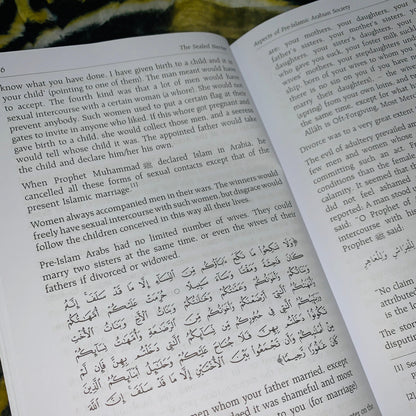 6
The Sealed Nectar
know what you have done. I have given birth to a child and it is
your child' (pointing to one of them) The man meant would have
to accept. The fourth kind was that a lot of men would have
sexual intercourse with a certain woman (a whore). She would not
prevent anybody. Such women used to put a certain flag at their
gates to invite in anyone who liked. If this whore got pregnant and
gave birth to a child, she would collect those men, and a seeress
would tell whose child it was. The appointed father would take
the child and declare him/her his own.
When Prophet Muhammad ﷺ declared Islam in Arabia, he
cancelled all these forms of sexual contacts except that of the
present Islamic marriage.[1]
Women always accompanied men in their wars. The winners would
freely have sexual intercourse with such women, but disgrace would
follow the children conceived in this way all their lives.
Pre-Islam Arabs had no limited number of wives. They could
marry two sisters at the same time, or even the wives of their
fathers if divorced or widowed.
﴿وَلَا تَنكِحُوا مَا نَكَحَ ءَابَآؤُكُم مِّنَ ٱلنِّسَآءِ إِلَّا مَا قَدْ سَلَفَ إِنَّهُۥ
كَانَ فَٰحِشَةً وَمَقْتًا وَسَآءَ سَبِيلًا حُرِّمَتْ عَلَيْكُمْ أُمَّهَٰتُكُمْ
وَبَنَاتُكُمْ وَأَخَوَٰتُكُمْ وَعَمَّٰتُكُمْ وَخَٰلَٰتُكُمْ وَبَنَاتُ ٱلْأَخِ وَبَنَاتُ ٱلْأُخْتِ
وَأُمَّهَٰتُكُمُ ٱلَّٰتِىٓ أَرْضَعْنَكُمْ وَأَخَوَٰتُكُم مِّنَ ٱلرَّضَٰعَةِ وَأُمَّهَٰتُ نِسَآئِكُمْ
وَرَبَٰٓئِبُكُمُ ٱلَّٰتِى فِى حُجُورِكُم مِّن نِّسَآئِكُمُ ٱلَّٰتِى دَخَلْتُم بِهِنَّ فَإِن لَّمْ
تَكُونُوا دَخَلْتُم بِهِنَّ فَلَا جُنَاحَ عَلَيْكُمْ وَحَلَٰٓئِلُ أَبْنَآئِكُمُ ٱلَّذِينَ
مِنْ أَصْلَٰبِكُمْ وَأَن تَجْمَعُوا بَيْنَ ٱلْأُخْتَيْنِ إِلَّا مَا قَدْ سَلَفَ إِنَّ ٱللَّهَ
كَانَ غَفُورًا رَّحِيمًا﴾
women whom your father married, except
indeed it was shameful and most
to you (for marriage)
Aspects of Pre-Islamic Arabian Society
are: your mothers, your daughters, your
father's sisters, your mother's sisters,
daughters, your sister's daughters, your
who gave you suck, your foster milk suck
wives' mothers, your stepdaughters
there is no sin on you if you have
marry their daughters), – the wives
spring) from your own loins, – and two
the same time, except for what has
Allâh is Oft-Forgiving, Most Merciful
Divorce was to a very great extent
The evil of adultery prevailed
few men and women who
committing such an act. Free
women from the female
calamity. It seemed that
did not feel ashamed
reported: A man stood
said: "O Prophet of
intercourse with
Prophet ﷺ said:
"No claim
attributed
is the lo
The stor
disputin
[1] See
[2]